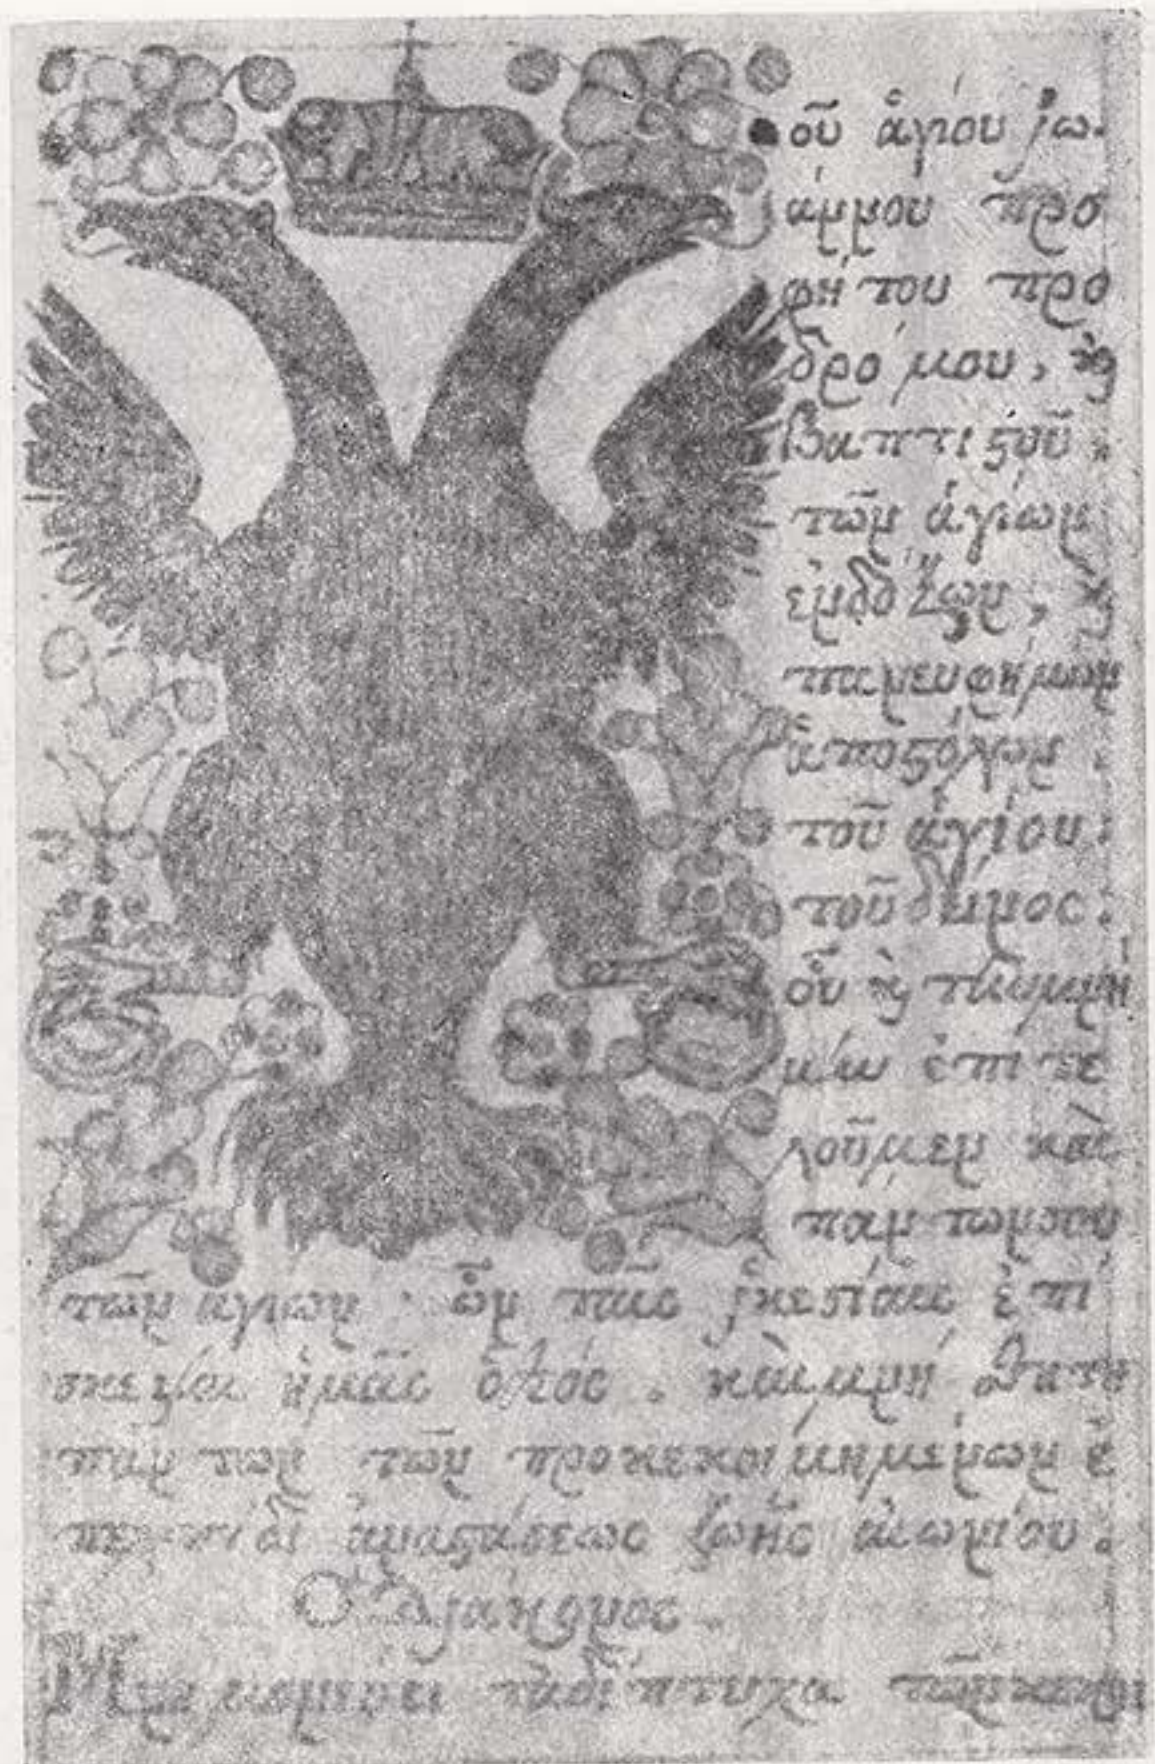 οῦ ἁγίου ἰω
άννου προ
φήτου προ
δρόμου, ϗ
βαπτιϛοῦ,
τῶν ἁγίων
ἐνδόξων, ϗ
πανευφήμων
ἀποϛόλων.
τοῦ ἁγίου:
τοῦ δεῖνος:
οὗ ϗ τὴν μνή
μην ἐπιτε
λοῦμεν καὶ
πάντων σου
τῶν ἁγίων. ὧν ταῖς ἱκεσίαις ἐπί
σκεψαι ἡμᾶς ὁ θεός. καὶ μνήσθητι
πάντων τῶν προκεκοιμημένων ἐ
πελπίδι ἀναϛάσεως ζωῆς αἰωνίου.
Ὁ διάκονος
τὰ δίπτυχα τῶν